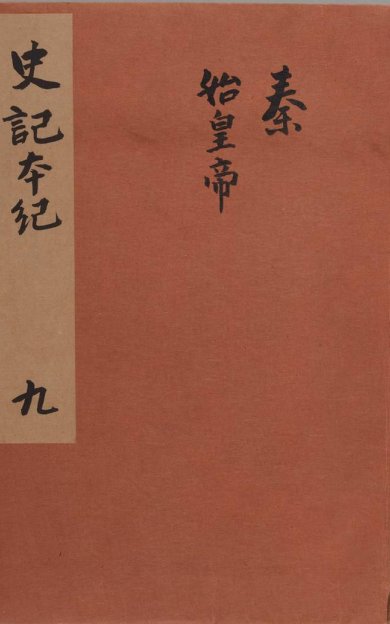 秦
始皇帝
史記本紀 九